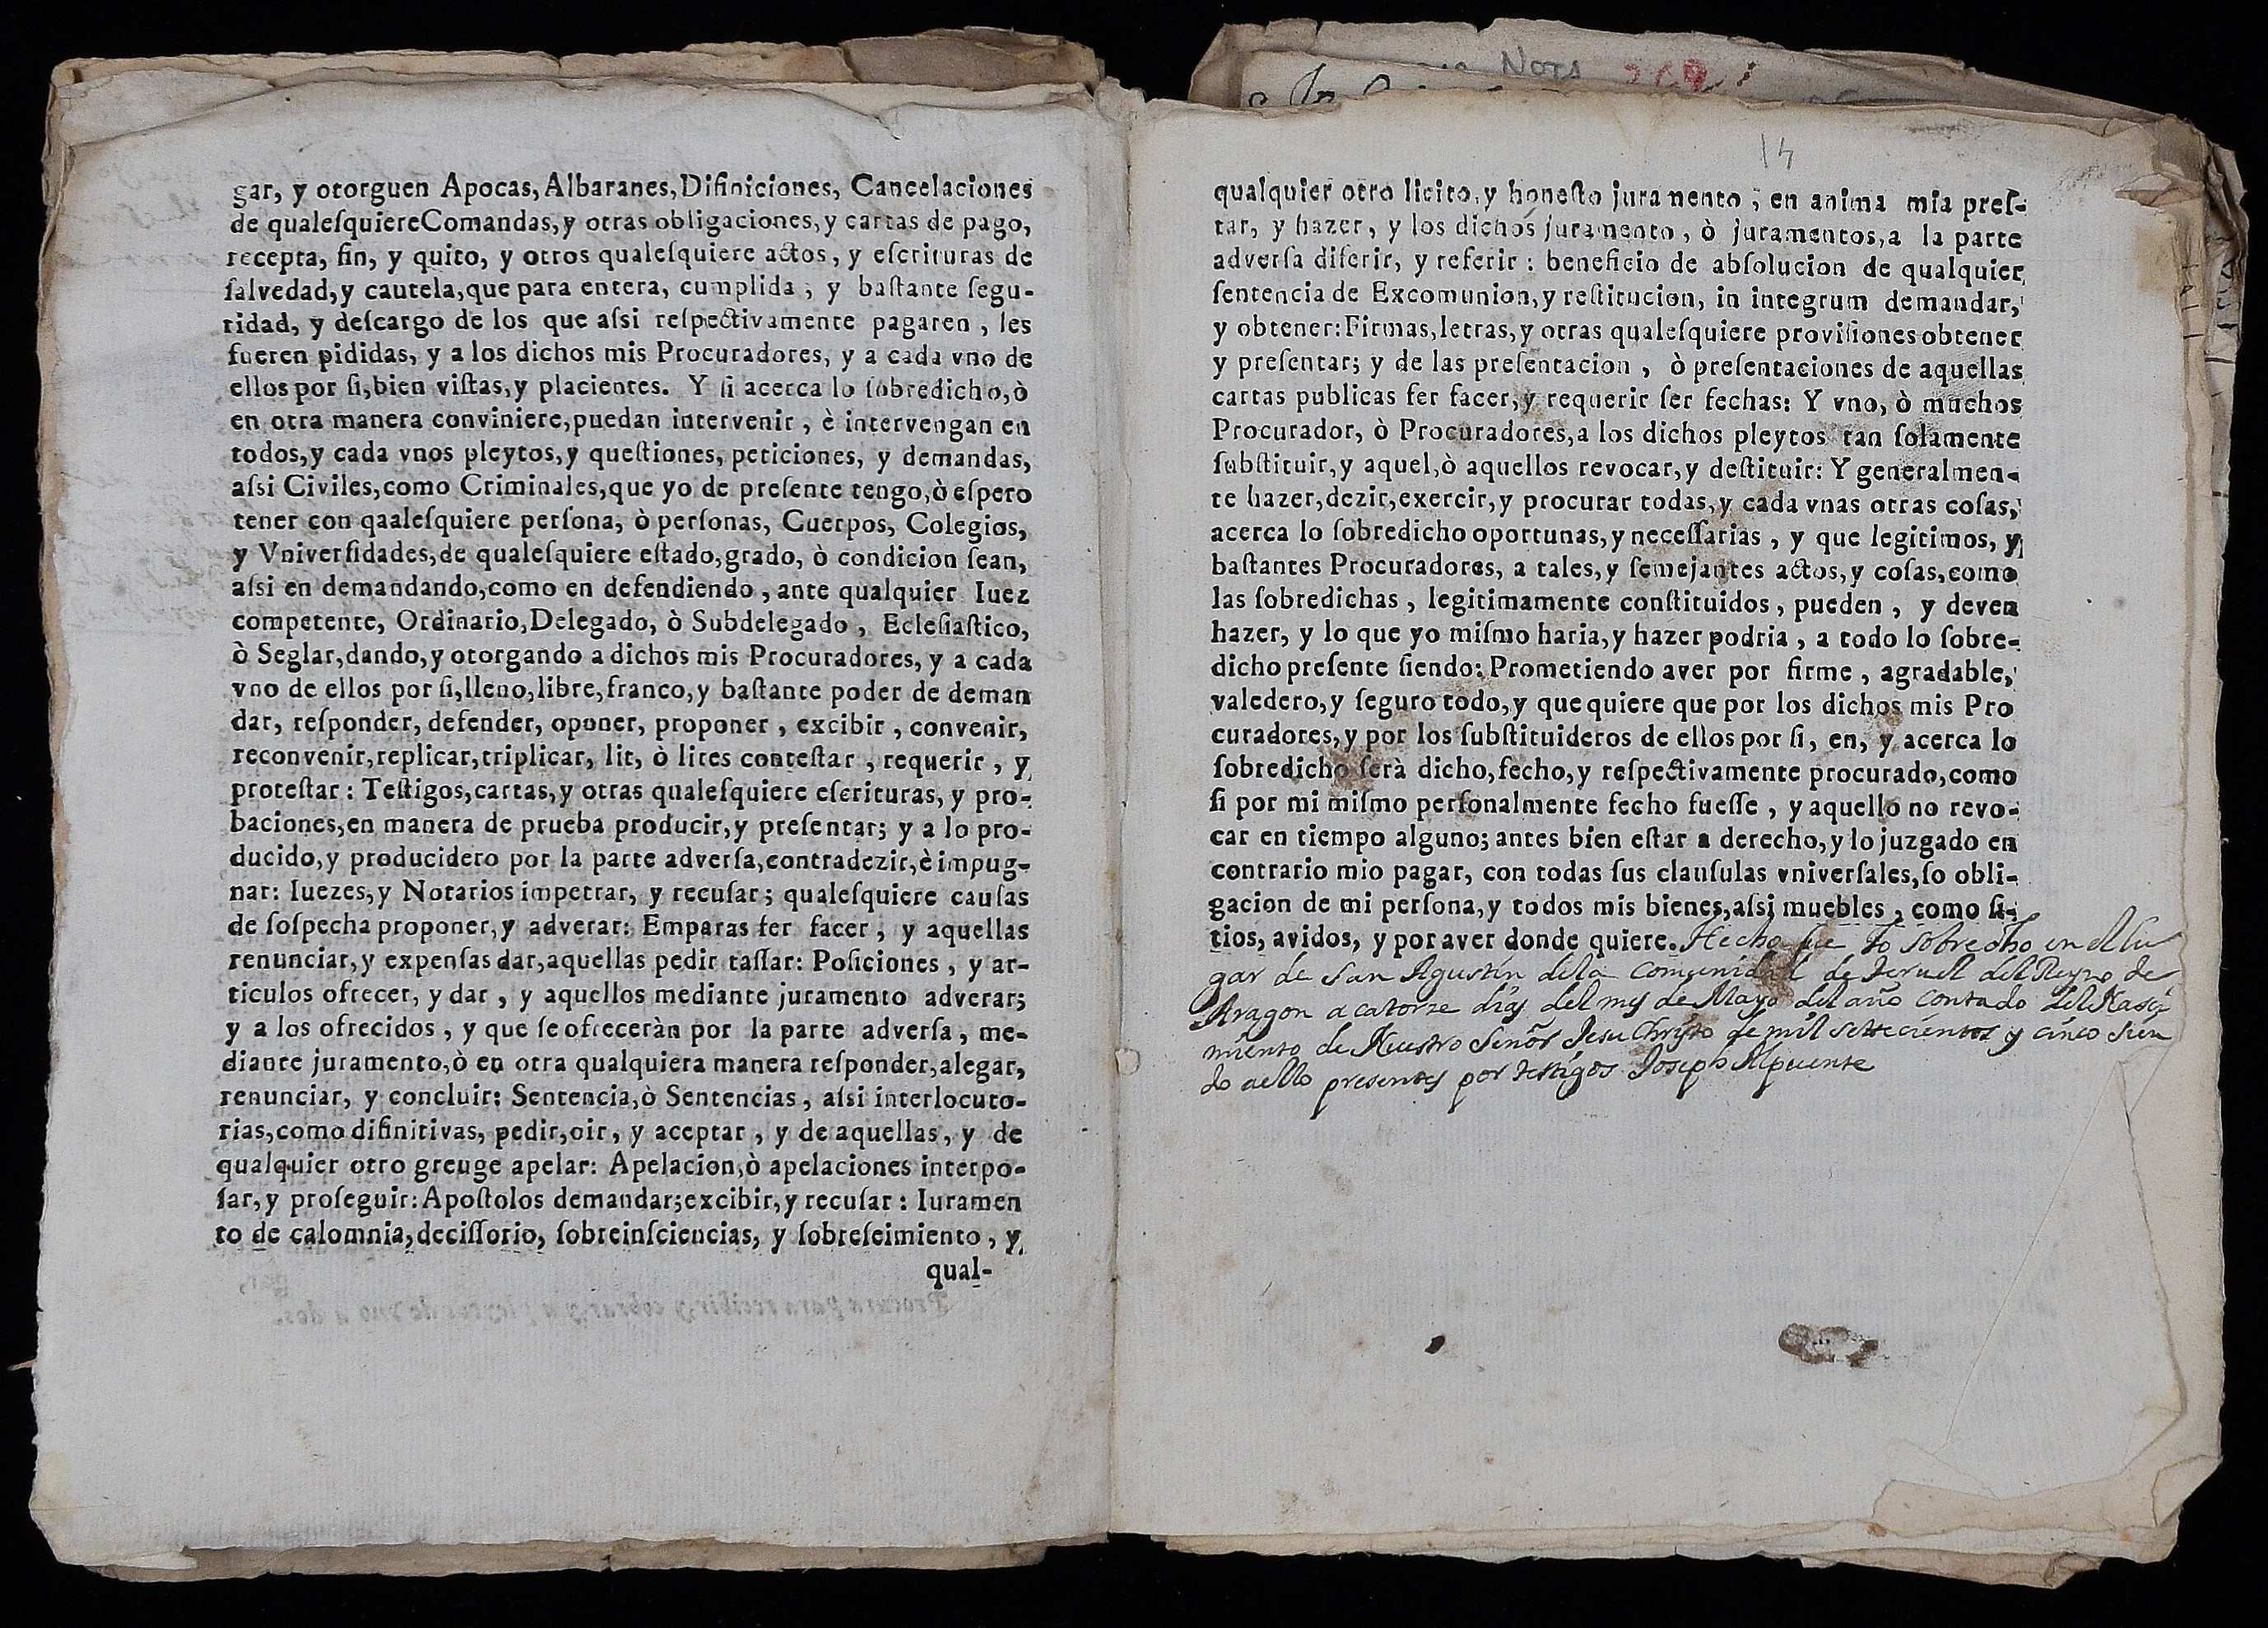 gar, y otorguen Apocas, Albaranes, Difiniciones, Cancelaciones
de qualeſquiere Comandas, y otras obligaciones, y cartas de pago,
recepta, fin, y quito, y otros qualeſquiere actos, y eſcrituras de
ſalvedad, y cautela, que para entera, cumplida, y baſtante ſegu-
ridad, y deſcargo de los que aſsi reſpectivamente pagaren, les
fueren pididas, y a los dichos mis Procuradores, y a cada vno de
ellos por ſi, bien viſtas, y placientes. Y ſi acerca lo ſobredicho, ò
en otra manera conviniere, puedan intervenir, è intervengan en
todos, y cada vnos pleytos, y queſtiones, peticiones, y demandas,
aſsi Civiles, como Criminales, que yo de preſente tengo, ò eſpero
tener con qaaleſquiere perſona, ò perſonas, Cuerpos, Colegios,
y Vniverſidades, de qualeſquiere eſtado, grado, ò condicion ſean,
aſsi en demandando, como en defendiendo, ante qualquier Iuez
competente, Ordinario, Delegado, ò Subdelegado, Ecleſiaſtico,
ò Seglar, dando, y otorgando a dichos mis Procuradores, y a cada
vno de ellos por ſi, lleno, libre, franco, y baſtante poder de deman
dar, reſponder, defender, oponer, proponer, excibir, convenir,
reconvenir, replicar, triplicar, lit, ò lites conteſtar, requerir, y
proteſtar: Teſtigos, cartas, y otras qualeſquiere eſcrituras, y pro-
baciones, en manera de prueba producir, y preſentar; y a lo pro-
ducido, y producidero por la parte adverſa, contradezir, è impug-
nar: Iuezes, y Notarios impetrar, y recuſar; qualeſquiere cauſas
de ſoſpecha proponer, y adverar: Emparas fer facer, y aquellas
renunciar, y expenſas dar, aquellas pedir taſſar: Poſiciones, y ar-
ticulos ofrecer, y dar, y aquellos mediante juramento adverar;
y a los ofrecidos, y que ſe ofreceràn por la parte adverſa, me-
diante juramento, ò en otra qualquiera manera reſponder, alegar,
renunciar, y concluir: Sentencia, ò Sentencias, aſsi interlocuto-
rias, como difinitivas, pedir, oir, y aceptar, y de aquellas, y de
qualquier otro greuge apelar: Apelacion, ò apelaciones interpo-
ſar, y proſeguir: Apoſtolos demandar; excibir, y recuſar: Iuramen
to de calomnia, deciſſorio, ſobreinſciencias, y ſobreſeimiento, y
qual-
14
qualquier otro licito, y honeſto juramento, en anima mia preſ-
tar, y hazer, y los dichos juramento, ò juramentos, a la parte
adverſa diferir, y referir: beneficio de abſolucion de qualquier
ſentencia de Excomunion, y reſtitucion, in integrum demandar,
y obtener: Firmas, letras, y otras qualeſquiere proviſiones obtener
y preſentar; y de las preſentacion, ò preſentaciones de aquellas
cartas publicas fer facer, y requerir ſer fechas: Y vno, ò muchos
Procurador, ò Procuradores, a los dichos pleytos tan ſolamente
ſubſtituir, y aquel, ò aquellos revocar, y deſtituir: Y generalmen-
te hazer, dezir, exercir, y procurar todas, y cada vnas otras coſas,
acerca lo ſobredicho oportunas, y neceſſarias, y que legitimos, y
baſtantes Procuradores, a tales, y ſemejantes actos, y coſas, como
las ſobredichas, legitimamente conſtituidos, pueden, y deven
hazer, y lo que yo miſmo haria, y hazer podria, a todo lo ſobre-
dicho preſente ſiendo: Prometiendo aver por firme, agradable,
valedero, y ſeguro todo, y que quiere que por los dichos mis Pro
curadores, y por los ſubſtituideros de ellos por ſi, en, y acerca lo
ſobredicho ſerà dicho, fecho, y reſpectivamente procurado, como
ſi por mi miſmo perſonalmente fecho fueſſe, y aquello no revo-
car en tiempo alguno; antes bien eſtar a derecho, y lo juzgado en
contrario mio pagar, con todas ſus clauſulas vniverſales, ſo obli-
gacion de mi perſona, y todos mis bienes, aſsi muebles, como ſi-
tios, avidos, y por aver donde quiere. Hecho fue lo sobredho en el lu
gar de San Agustin de la Comunidad de Teruel del Reyno de
Aragon a catorze dias del mes de Mayo del año contado del Nasci
miento de Nuestro Señor Jesu Christo de mil setecientos y cinco sien
do a ello presentes por testigos Joseph Alpuente